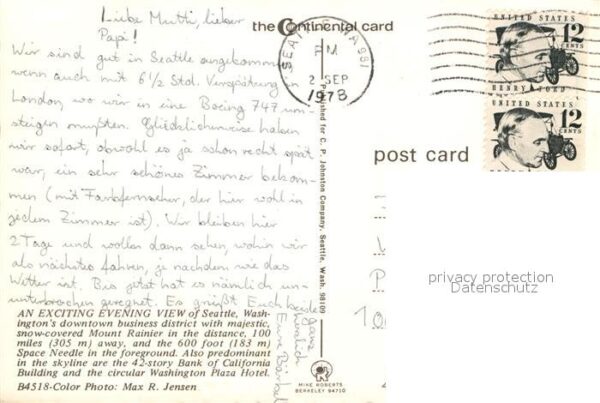 Liebe Mutti, lieber
Papi!
Wir sind gut in Seattle angekommen,
wenn auch mit 6 1/2 Std. Verspätung
London, wo wir in eine Boeing 747 um-
steigen mußten. Glücklicherweise haben
wir sofort, obwohl es ja schon recht spät
war, ein sehr schönes Zimmer bekom-
men (mit Farbfernseher, der hier wohl in
jedem Zimmer ist). Wir bleiben hier
2 Tage und wollen dann sehen, wohin wir
als nächstes fahren, je nachdem wie das
Wetter ist. Bis jetzt hat es nämlich un-
unterbrochen geregnet. Es grüßt Euch beide
ganz
herzlich
Eure Bärbel
AN EXCITING EVENING VIEW of Seattle, Wash-
ington's downtown business district with majestic,
snow-covered Mount Rainier in the distance, 100
miles (305 m) away, and the 600 foot (183 m)
Space Needle in the foreground. Also predominant
in the skyline are the 42-story Bank of California
Building and the circular Washington Plaza Hotel.
B4518-Color Photo: Max R. Jensen
the Continental card
Published for C. P. Johnston Company, Seattle, Wash. 98109
MIKE ROBERTS
BERKELEY 94710
SEATTLE WA 981
PM
2 SEP
1978
UNITED STATES
12
CENTS
HENRY FORD
UNITED STATES
12
CENTS
post card
privacy protection
Datenschutz